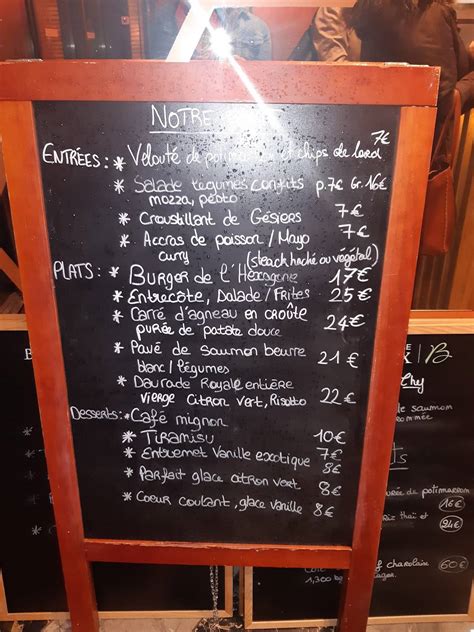 NOTRE
7€
ENTRÉES : * Velouté de potimarron et chips de lard
* Salade légumes confits p.7€ Gr.16€
mozza, pesto
* Croustillant de Gésiers 7€
* Accras de poisson / Mayo 7€
curry
(steack haché ou végétal)
PLATS : * Burger de l'Hexagone 17€
* Entrecôte, Salade / Frites 25€
* Carré d'agneau en croûte
purée de patate douce 24€
* Pavé de saumon beurre
blanc / légumes 21€
* Daurade Royale entière
vierge citron vert, Risotto 22€
Desserts : * Café mignon
* Tiramisu 10€
* Entremet Vanille exotique 7€
8€
* Parfait glace citron vert 8€
* Coeur coulant, glace vanille 8€
de saumon
purée de potimarron
16€
riz thaï et 24€
charolaise 60€
1,300 kg